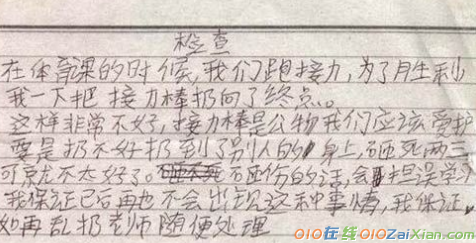 检查
在体育课的时候,我们跑接力,为了胜利
我一下把接力棒扔向了终点。
这样非常不好,接力棒是公物我们应该爱护
要是扔不好扔到了别人的身上,砸死两三
可就不太好了。砸伤的话,会担误学
我保证已后再也不会出现这种事情,我保证
如再乱扔老师随便处理
010在线010ZaiXian.com